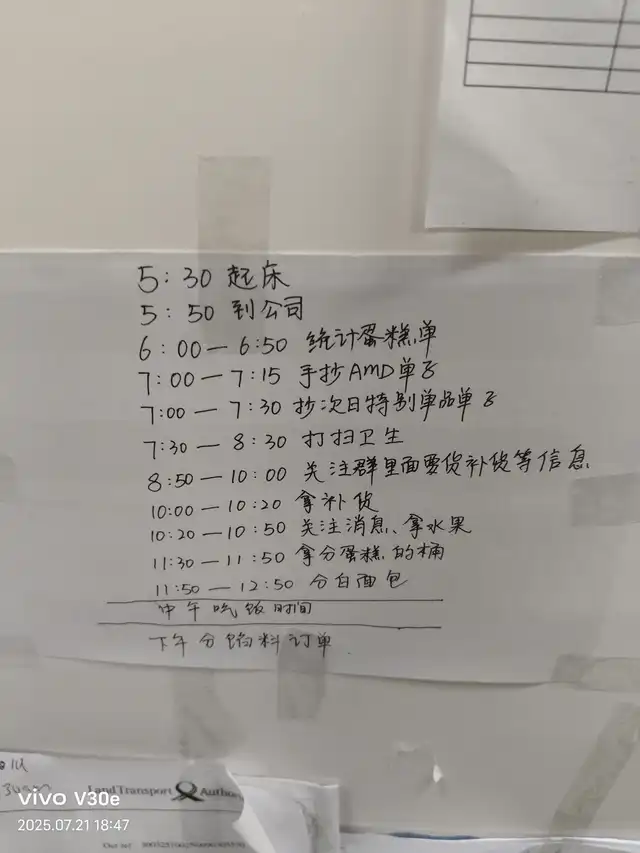 5:30 起床
5:50 到公司
6:00—6:50 统计蛋糕单
7:00—7:15 手抄AMD单子
7:00—7:30 抄次日特别单品单子
7:30—8:30 打扫卫生
8:50—10:00 关注群里面要货补货等信息
10:00—10:20 拿补货
10:20—10:50 关注消息、拿水果
11:30—11:50 拿分蛋糕的桶
11:50—12:50 分白面包
中午吃饭时间
下午分馅料订单
Land Transport Autho
vivo V30e
2025.07.21 18:47
Our ref